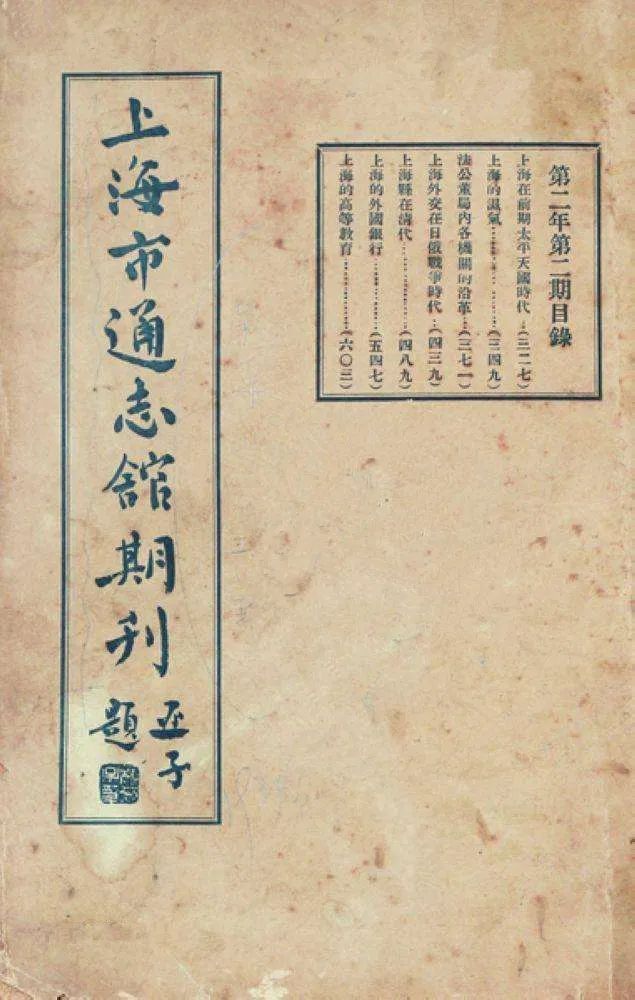 第二年第二期目錄
上海在前期太平天國時代…(三二七)
上海的濕氣……………(三四九)
法公董局內各機關的沿革…(三七一)
上海外交在日俄戰爭時代…(四三九)
上海縣在清代……………(四八九)
上海的外國銀行……………(五四七)
上海的高等教育……………(六〇三)
上海市通志館期刊
亚子
題